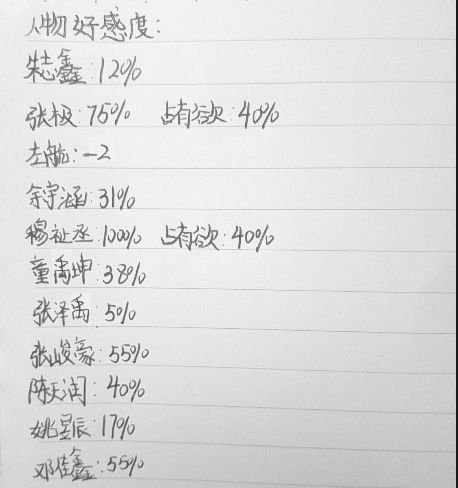 人物好感度:
朱志鑫:12%
张极:75% 占有欲:40%
左航:-2
余宇涵:31%
穆祉丞:100% 占有欲:40%
童禹坤:38%
张泽禹:5%
张峻豪:55%
陈天润:40%
姚昱辰:17%
邓佳鑫:55%